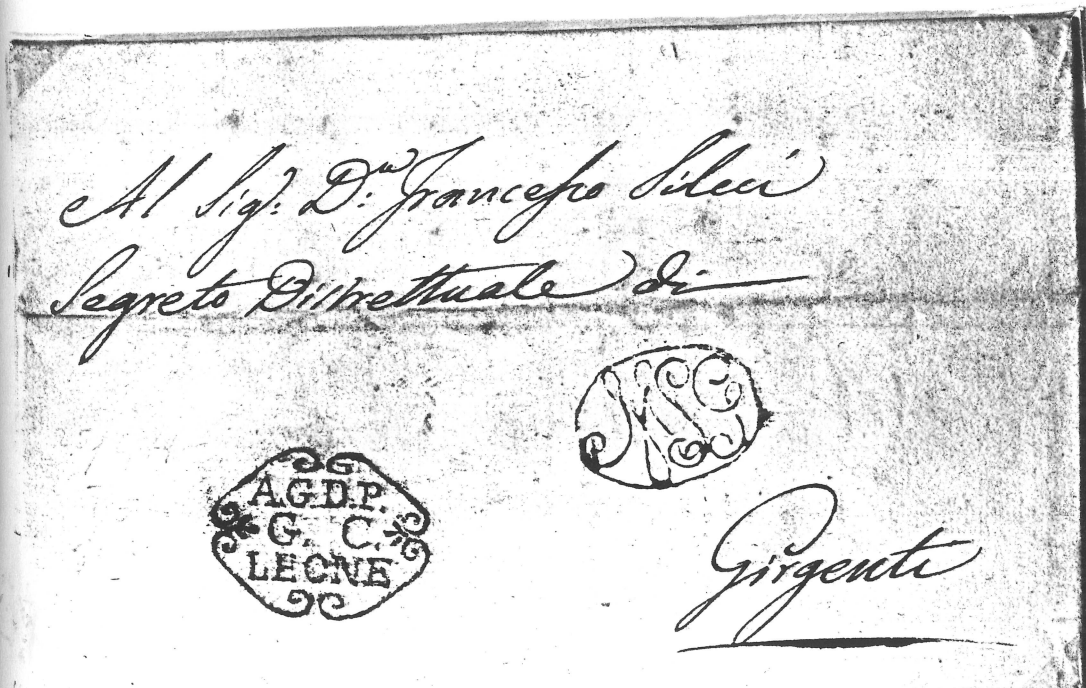 Al Sig.r D.n Francesco Sileci
Segreto Distrettuale di
A.G.D.P.
G. C.
LEONE
Girgenti